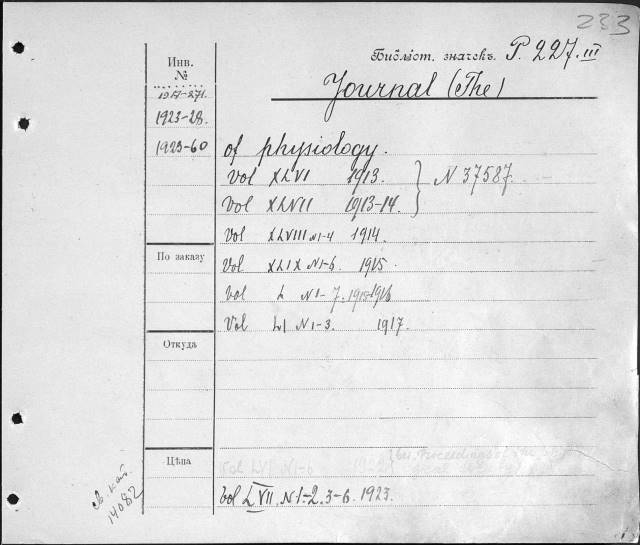 233
Библіот. значекъ. P. 227. III
Инв. №
Journal (The)
1917-271.
1923-28.
1923-60
of physiology.
Vol XLVI 1913. } N 37587.
Vol XLVII 1913-14.
Vol XLVIII N1-4 1914.
По заказу
Vol XLIX N1-6. 1915.
Vol L N1-7. 1915-1916
Vol LI N1-3. 1917.
Откуда
Цѣна
Vol LVI N1-6 1922
Vol LVII. N1-2. 3-6. 1923.
св. кат.
14082